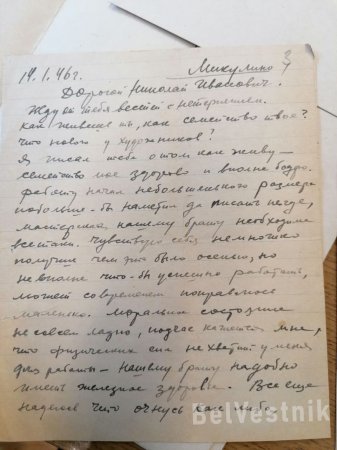 14.1.46г. Микулино
3
Дорогой Николай Иванович.
Жду от тебя вестей с нетерпением.
Как живешь ты, как семейство твое?
Что нового у художников?
Я писал тебе о том как живу –
семейство мое здорово и вполне бодро.
работу начал небольшенького размера
побольше бы наметил да писать негде,
мастерская нашему брату необходима
всетаки. Чувствую себя немножко
получше чем это было осенью, но
не вполне что-бы успешно работать,
может со временем поправлюсь
маленько. Моральное состояние
не совсем ладно, подчас кажется мне,
что физических сил не хватит у меня
для работы – нашему брату надобно
иметь железное здоровье. Все еще
надеюсь что очнусь как нибо
BelVestnik